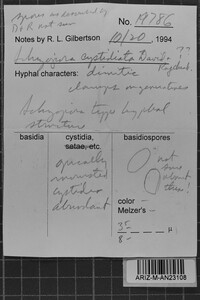 spores as described by
D + R not seen
No. 19786
Notes by R. L. Gilbertson 10/20, 1994
Schizopora cystidiata
Hyphal characters: dimitic
clamps
Schizopora type hyphal
structure
basidia
cystidia,
setae, etc.
basidiospores
apically
encrusted
cystidia
abundant
not
sure
about
these!
color –
Melzer's –
35
8 - μ
ARIZ-M-AN23108